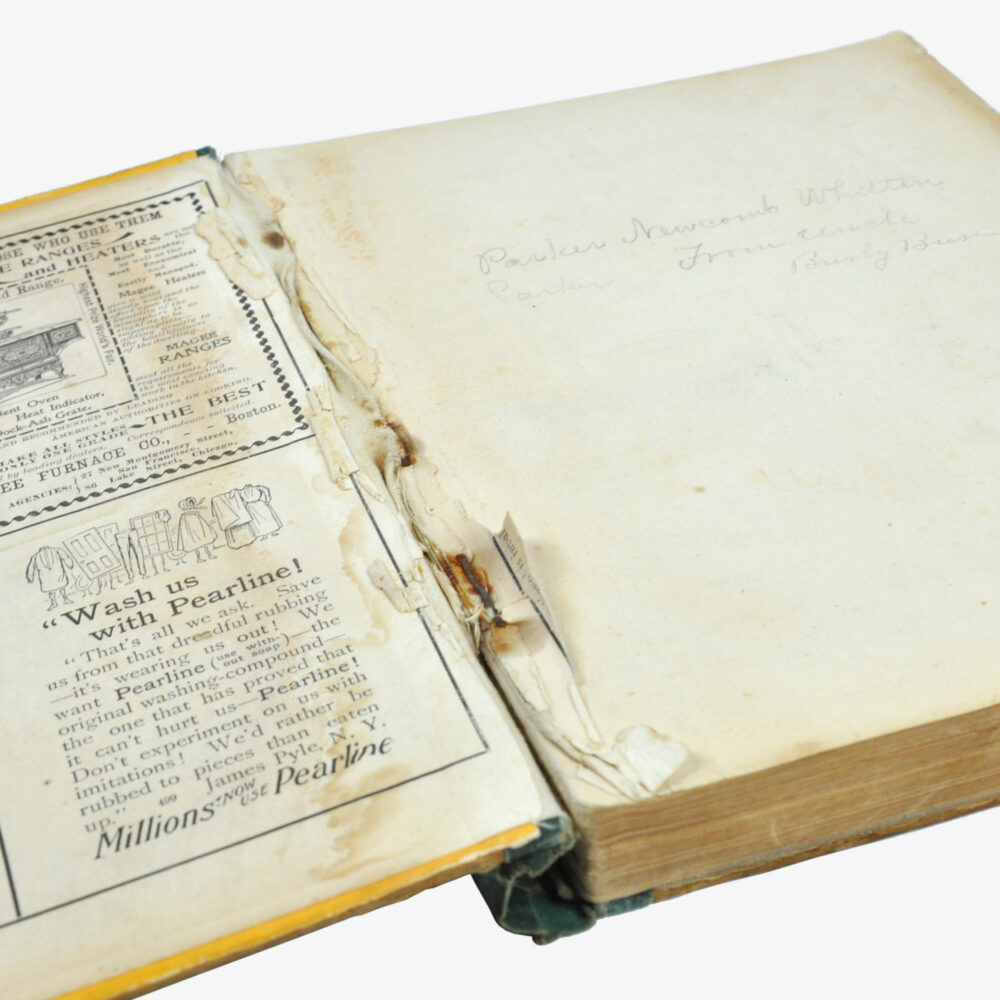 OSE WHO USE THEM
E RANGES
and HEATERS
are now
Most Durable,
as well as the
Most Economical
and
Easily Managed.
Magee Heaters
give a mild and the
MAGEE
RANGES
meet all the
requirements for
the most exacting
work in the kitchen.
d Range.
Highest Prize World's Fair.
lent Oven
Heat Indicator,
Dock-Ash Grate.
AND RECOMMENDED BY LEADING
AMERICAN AUTHORITIES ON COOKING.
MAKE ALL STYLES
ONLY ONE GRADE
THE BEST
by leading dealers. Correspondence solicited.
EE FURNACE CO., - - Boston.
AGENCIES: 27 New Montgomery Street, San Francisco.
86 Lake Street, Chicago.
"Wash us
with Pearline!
"That's all we ask. Save
us from that dreadful rubbing
—it's wearing us out! We
want Pearline (use with-out soap)—the
original washing-compound—
the one that has proved that
it can't hurt us—Pearline!
Don't experiment on us with
imitations! We'd rather be
rubbed to pieces than eaten
up." 499 James Pyle, N. Y.
Millions NOW USE Pearline
Parker Newcomb Whitten
From uncle
Parker
Busty Busi